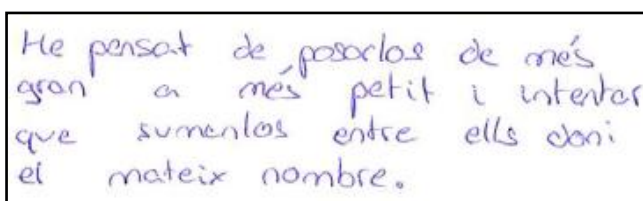 He pensat de posarlos de més
gran a més petit i intentar
que sumenlos entre ells doni
el mateix nombre.